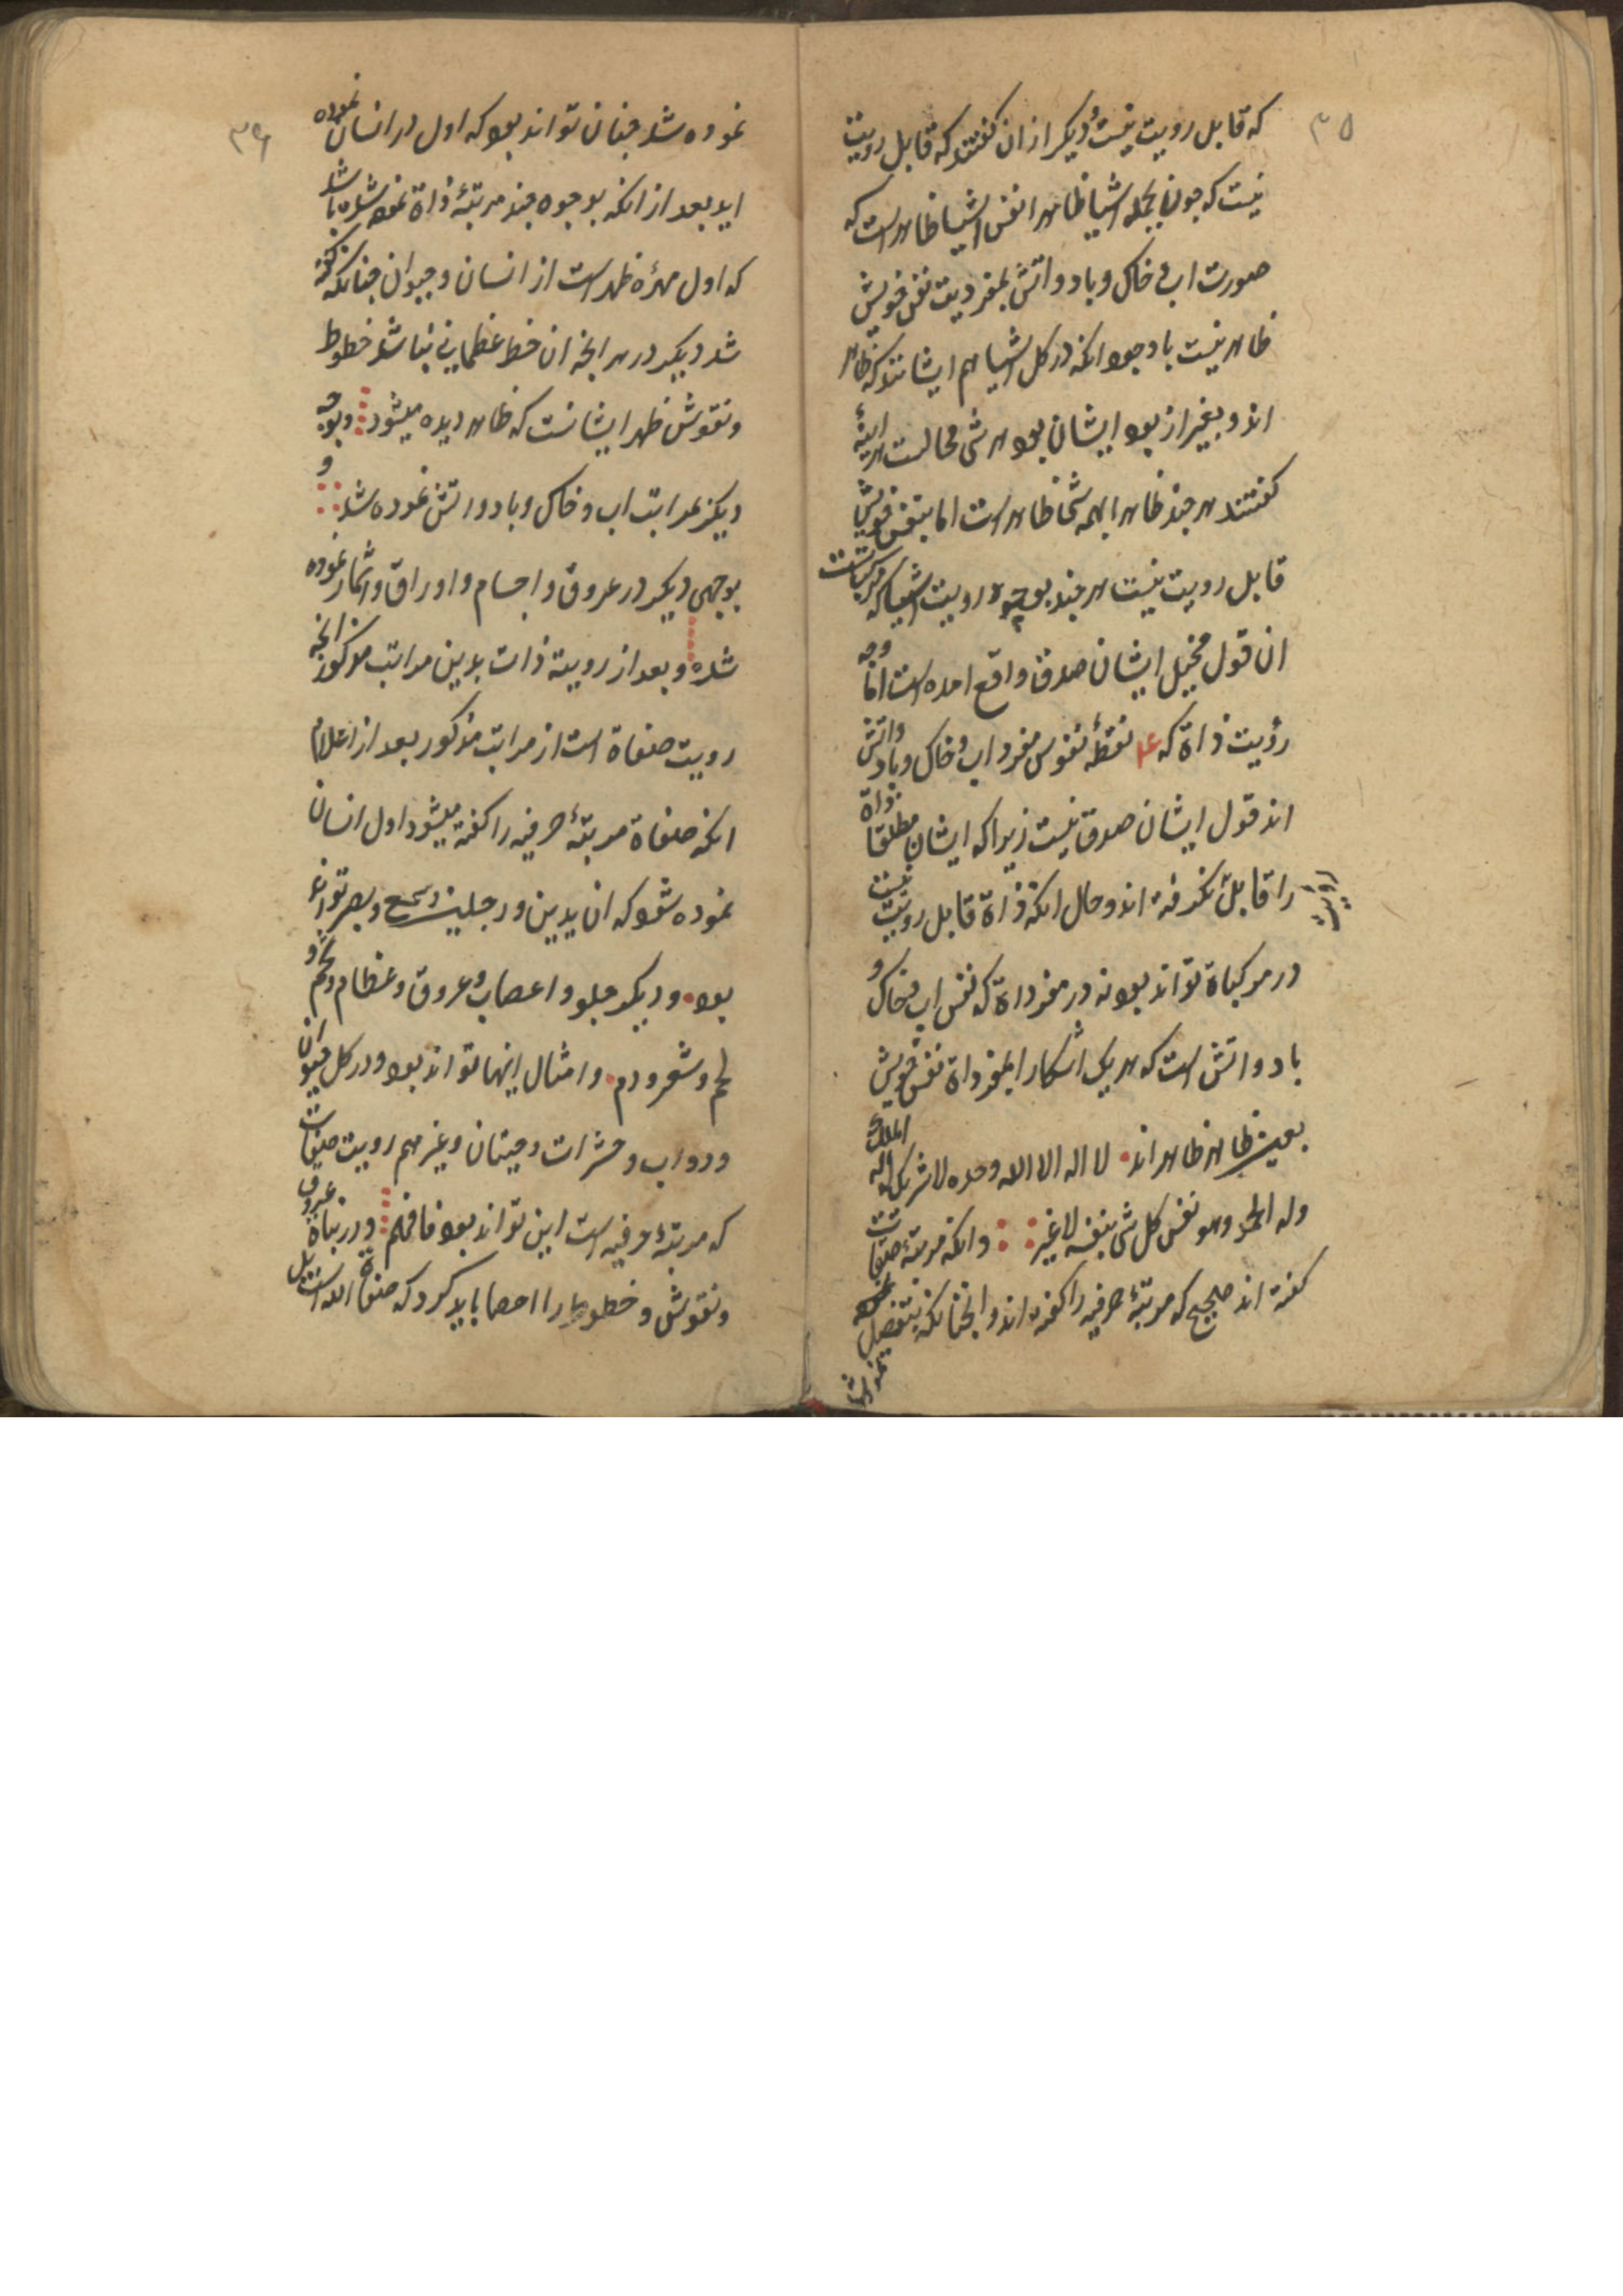 ۳۵
که قابل رویت نیست و دیکر از ان کفتند که قابل رویت
نیست که چون بجمله اشیا ظاهرا نفس اشیا ظاهر است که
صورت اب و خاک و باد و اتش بمفردیت نفس خویش
ظاهر نیست با وجود انکه در کل اشیا هم ایشانند که ظاهر
اند و بغیر از بود ایشان بود هر شی محالست هر اینهٔ
کفتند هر چند ظاهرا بهمه شی ظاهر است اما بنفس خویش
قابل رویت نیست هر چند بوجوه رویت اشیا که مرکباتست
ان قول مخیل ایشان صدق واقع امده است اما وجه
رؤیت ذاة که نقطهٔ نفوس مفرد اب و خاک و باد و اتش
اند قول ایشان صدق نیست زیرا که ایشان مطلقا ذاة
را قابل رویت نکرفته اند و حال انکه ذاة قابل رویت نیست
در مرکباة تواند بود نه در مفرداة که نفس اب و خاک و
باد و اتش است که هر یک اشکارا بمفرداة نفس خویش
بعین ظاهر ظاهر اند لا اله الا الله وحده لا شریک له له الملک
وله الحمد وهو نفس کل شی بنفسه لا غیر وانکه مرتبهٔ صفات
کفته اند صحیح که مرتبهٔ حرفیه را کفته اند و انچنانکه بتفصیل
۳۶
نموده شد چنان تواند بود که اول در انسان نموده
اید بعد از انکه بوجوه چند مرتبهٔ ذاة نموده شده باشد
که اول مهرهٔ ظهر است از انسان و حیوان چنانکه کفته
شد دیکر در هر انچه ان خط عظمایی نباشد خطوط
ونقوش ظهر ایشانست که ظاهر دیده میشود وبوجه
دیکر بمراتب اب و خاک و باد و اتش نموده شد و
بوجهی دیکر در عروق و اجسام و اوراق و اثمار نموده
شده وبعد از رویة ذات بدین مراتب مذکور انچه
رویت صفاة است از مراتب مذکور بعد از اعلام
انکه صفاة مرتبهٔ حرفیه را کفته میشود اول انسان
نموده شود که ان یدین و رجلین وسمع وبصر تواند
بود و دیکر جلد و اعصاب و عروق و عظام و
لحم و شعر و دم و امثال اینها تواند بود و در کل حیوان
ودواب وحشرات وحیتان وغیرهم رویت صفات
که مرتبهٔ حرفیه است این تواند بود فافهم ودر نباة عروق
ونقوش و خطوط را احصا باید کرد که صفاة الله است